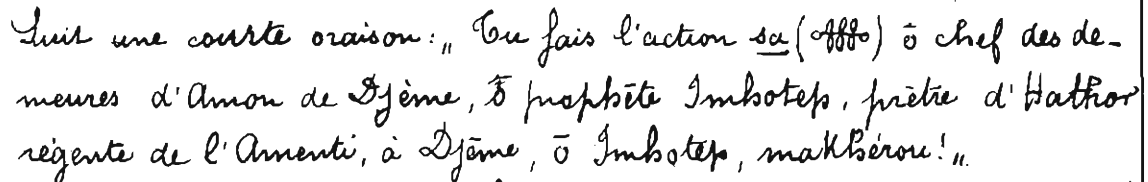 Suit une courte oraison: „ Tu fais l'action sa () ō chef des de-
meures d'Amon de Djème, ō prophète Imhotep, prêtre d'Hathor
régente de l'Amenti, à Djème, ō Imhotep, makhérou! „